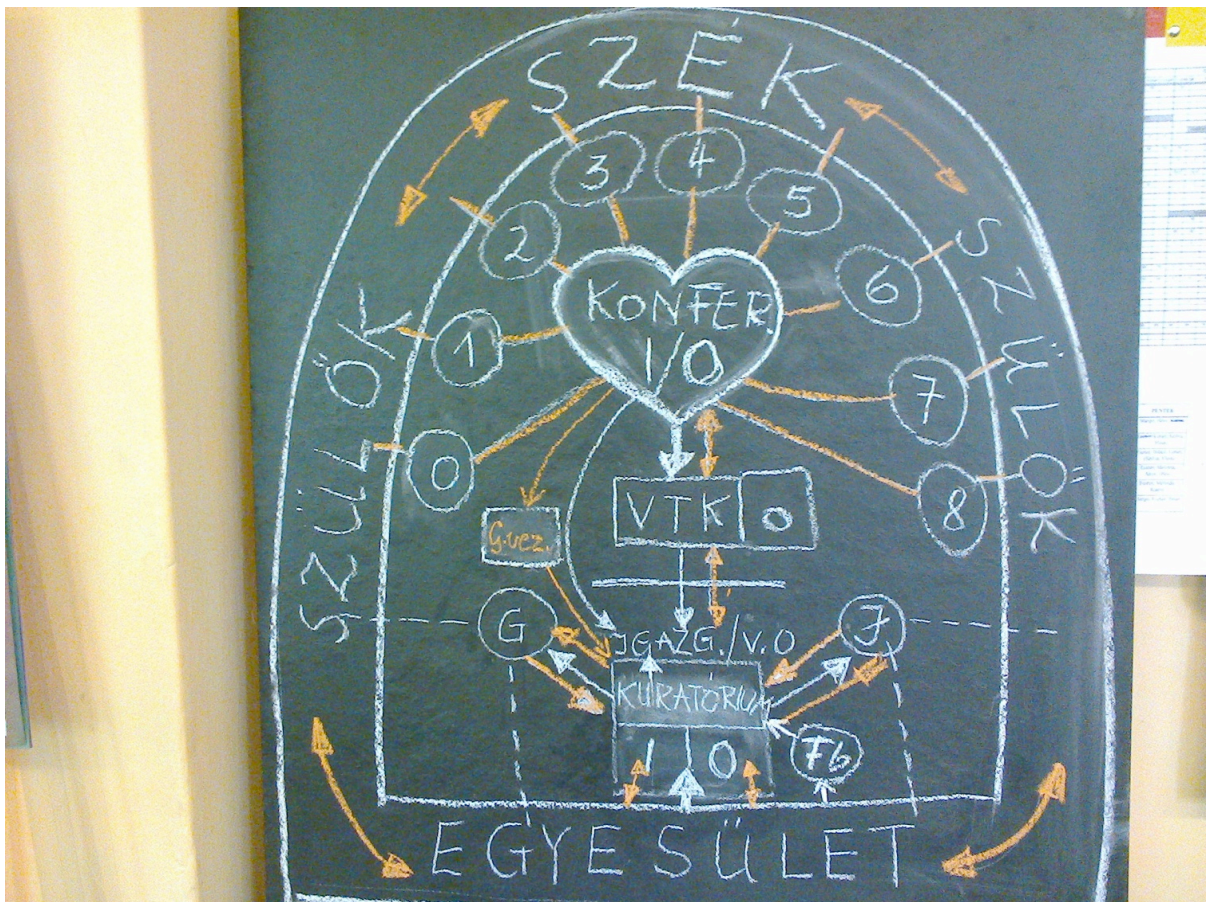 SZÉK
SZÜLŐK
SZÜLŐK
0
1
2
3
4
5
6
7
8
KONFER.
I/O
VTK O
G.vez.
G
J
IGAZG./V.O
KURATÓRIUM
I O
Fb
EGYESÜLET
PÉNTEK